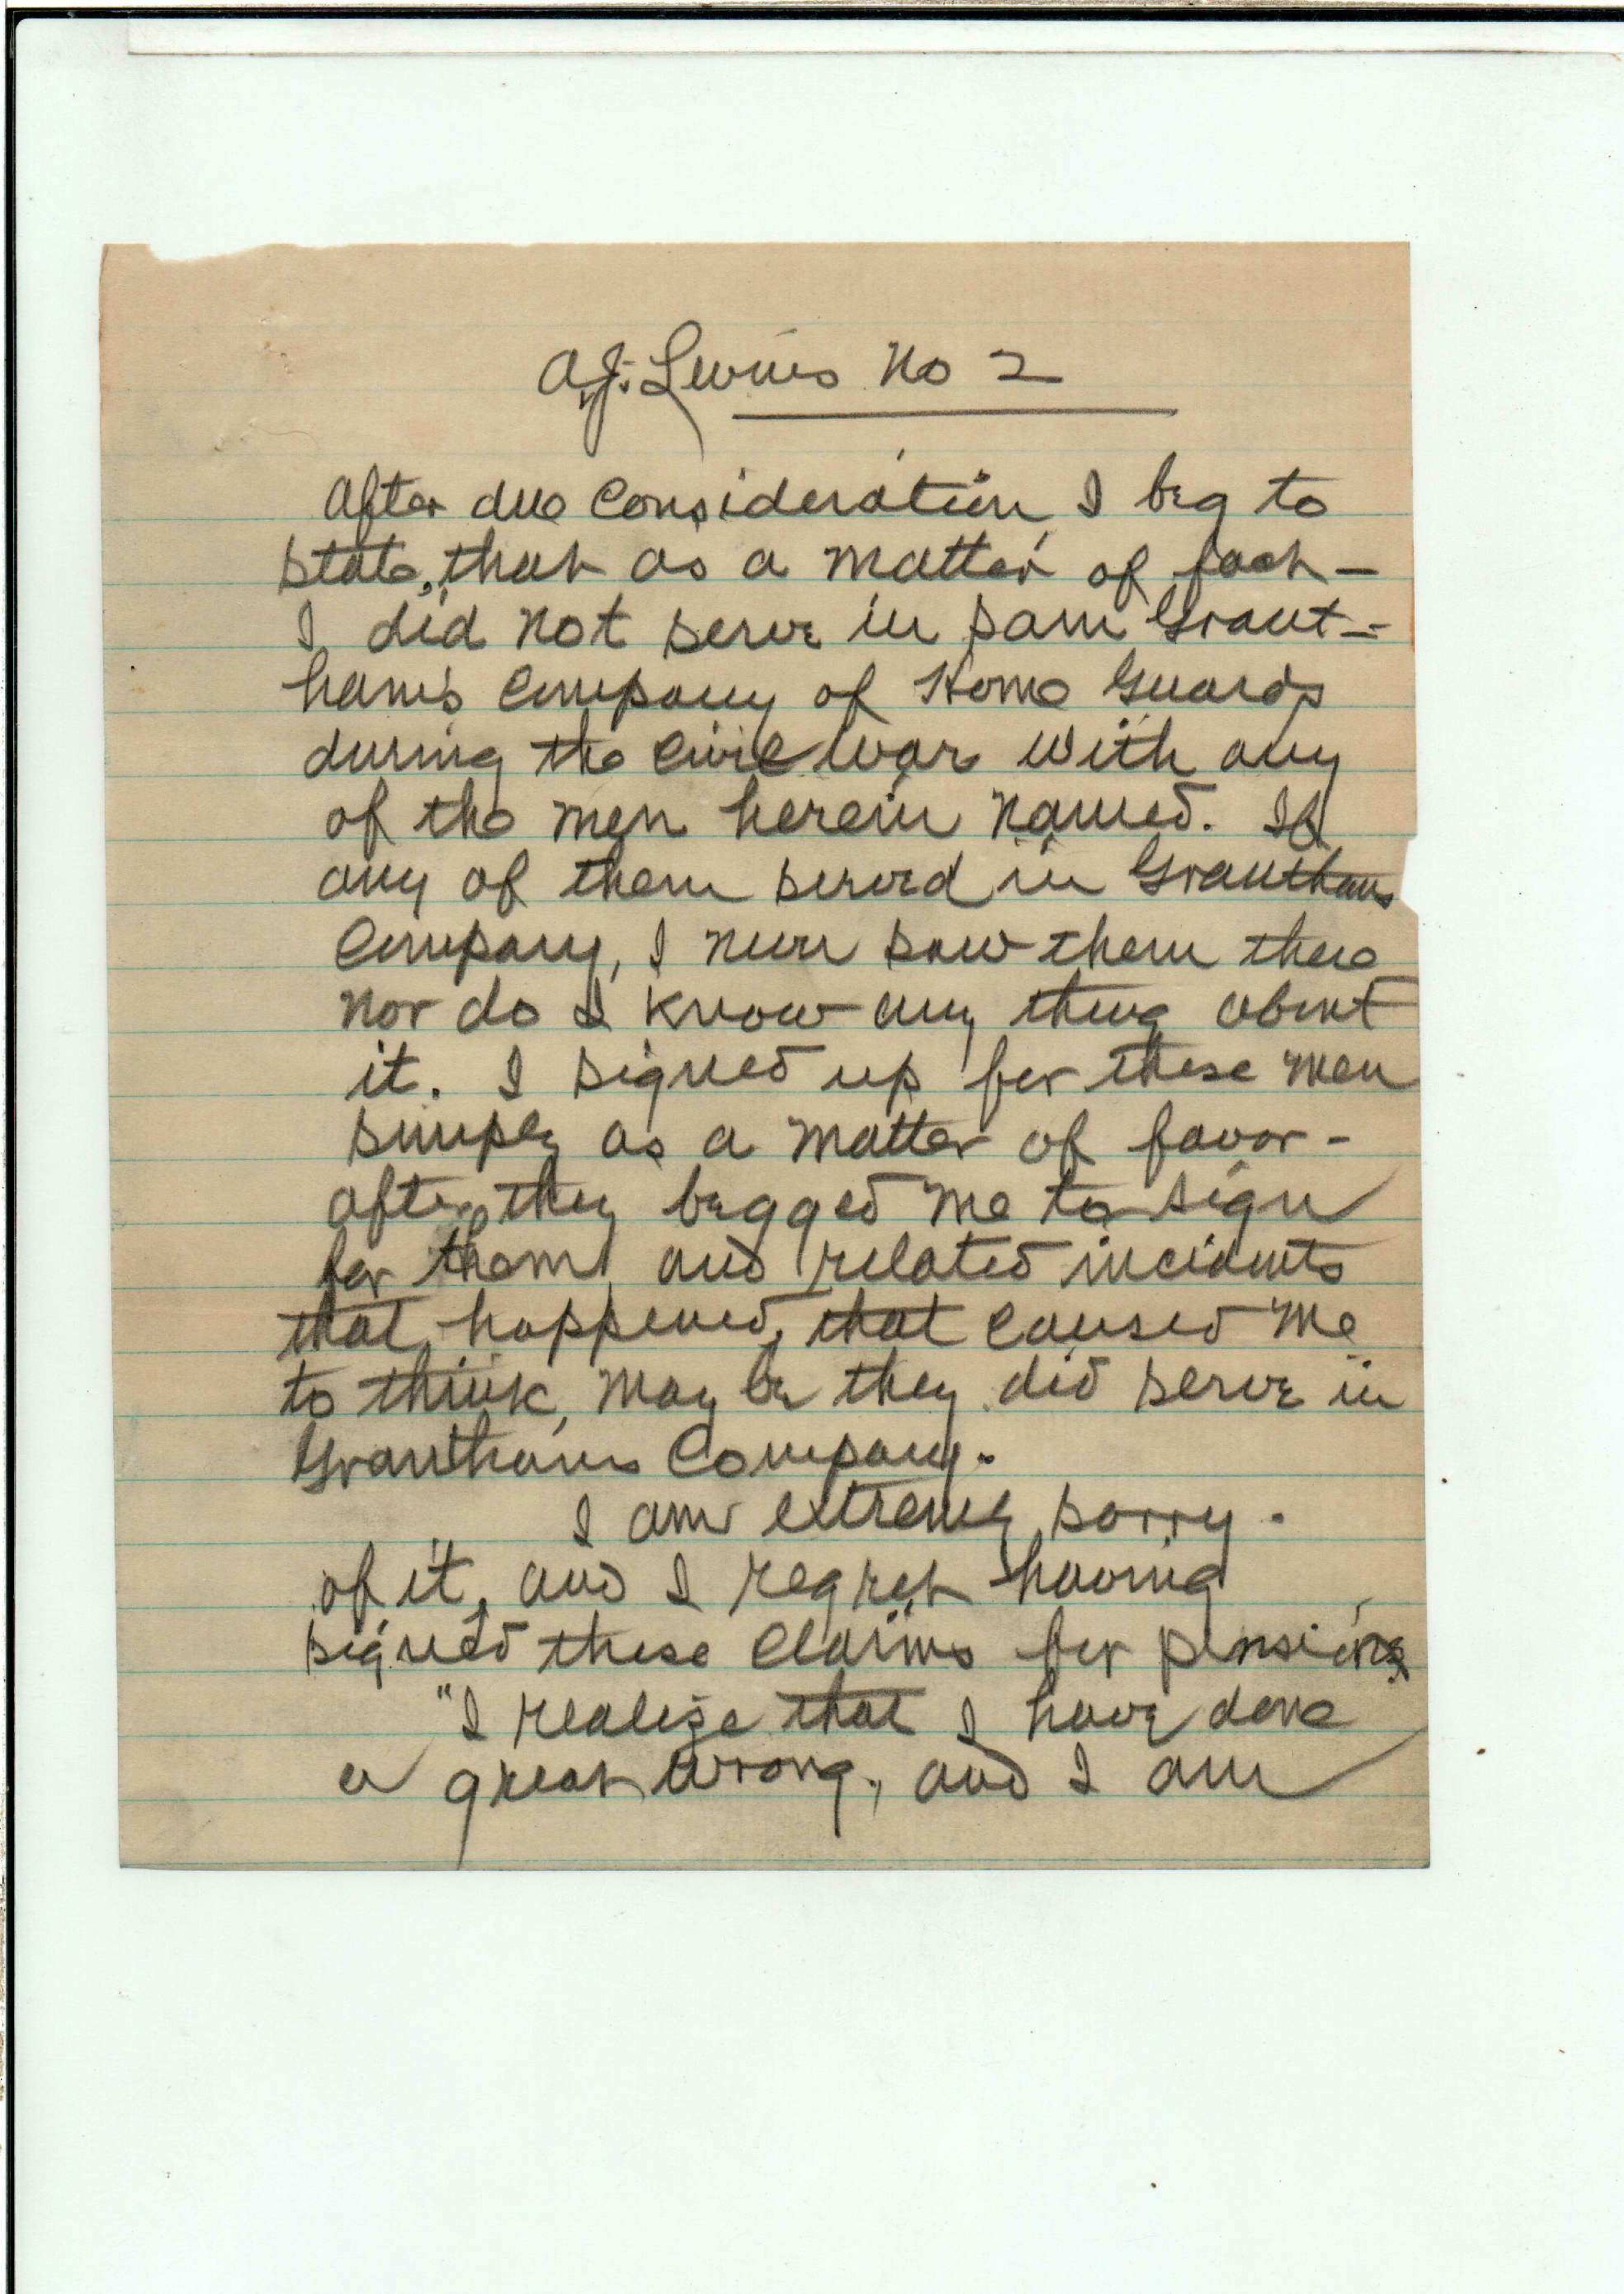 A.J. Lewis No 2
After due Consideration I beg to
state, that as a matter of fact -
I did not serve in Sam Grant-
ham's Company of Home Guards
during the Civil War With any
of the men herein named. If
any of them served in Granthams
Company, I never saw them there
nor do I know any thing about
it. I signed up for these men
simply as a matter of favor -
after they begged me to sign
for them and related incidents
that happened, that caused me
to think, may be they did serve in
Granthams Company.
I am extremely sorry.
of it, and I regret having
signed these Claims for pensions
"I realize that I have done
a great wrong, and I am